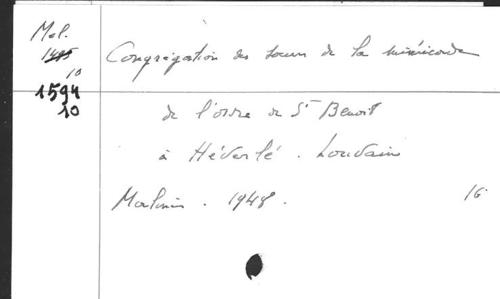 Mel.
1495
10
1594
10
Congrégation des soeurs de la miséricorde
de l'ordre de St Benoit
à Héverlé. Louvain
Moulins. 1948. 16